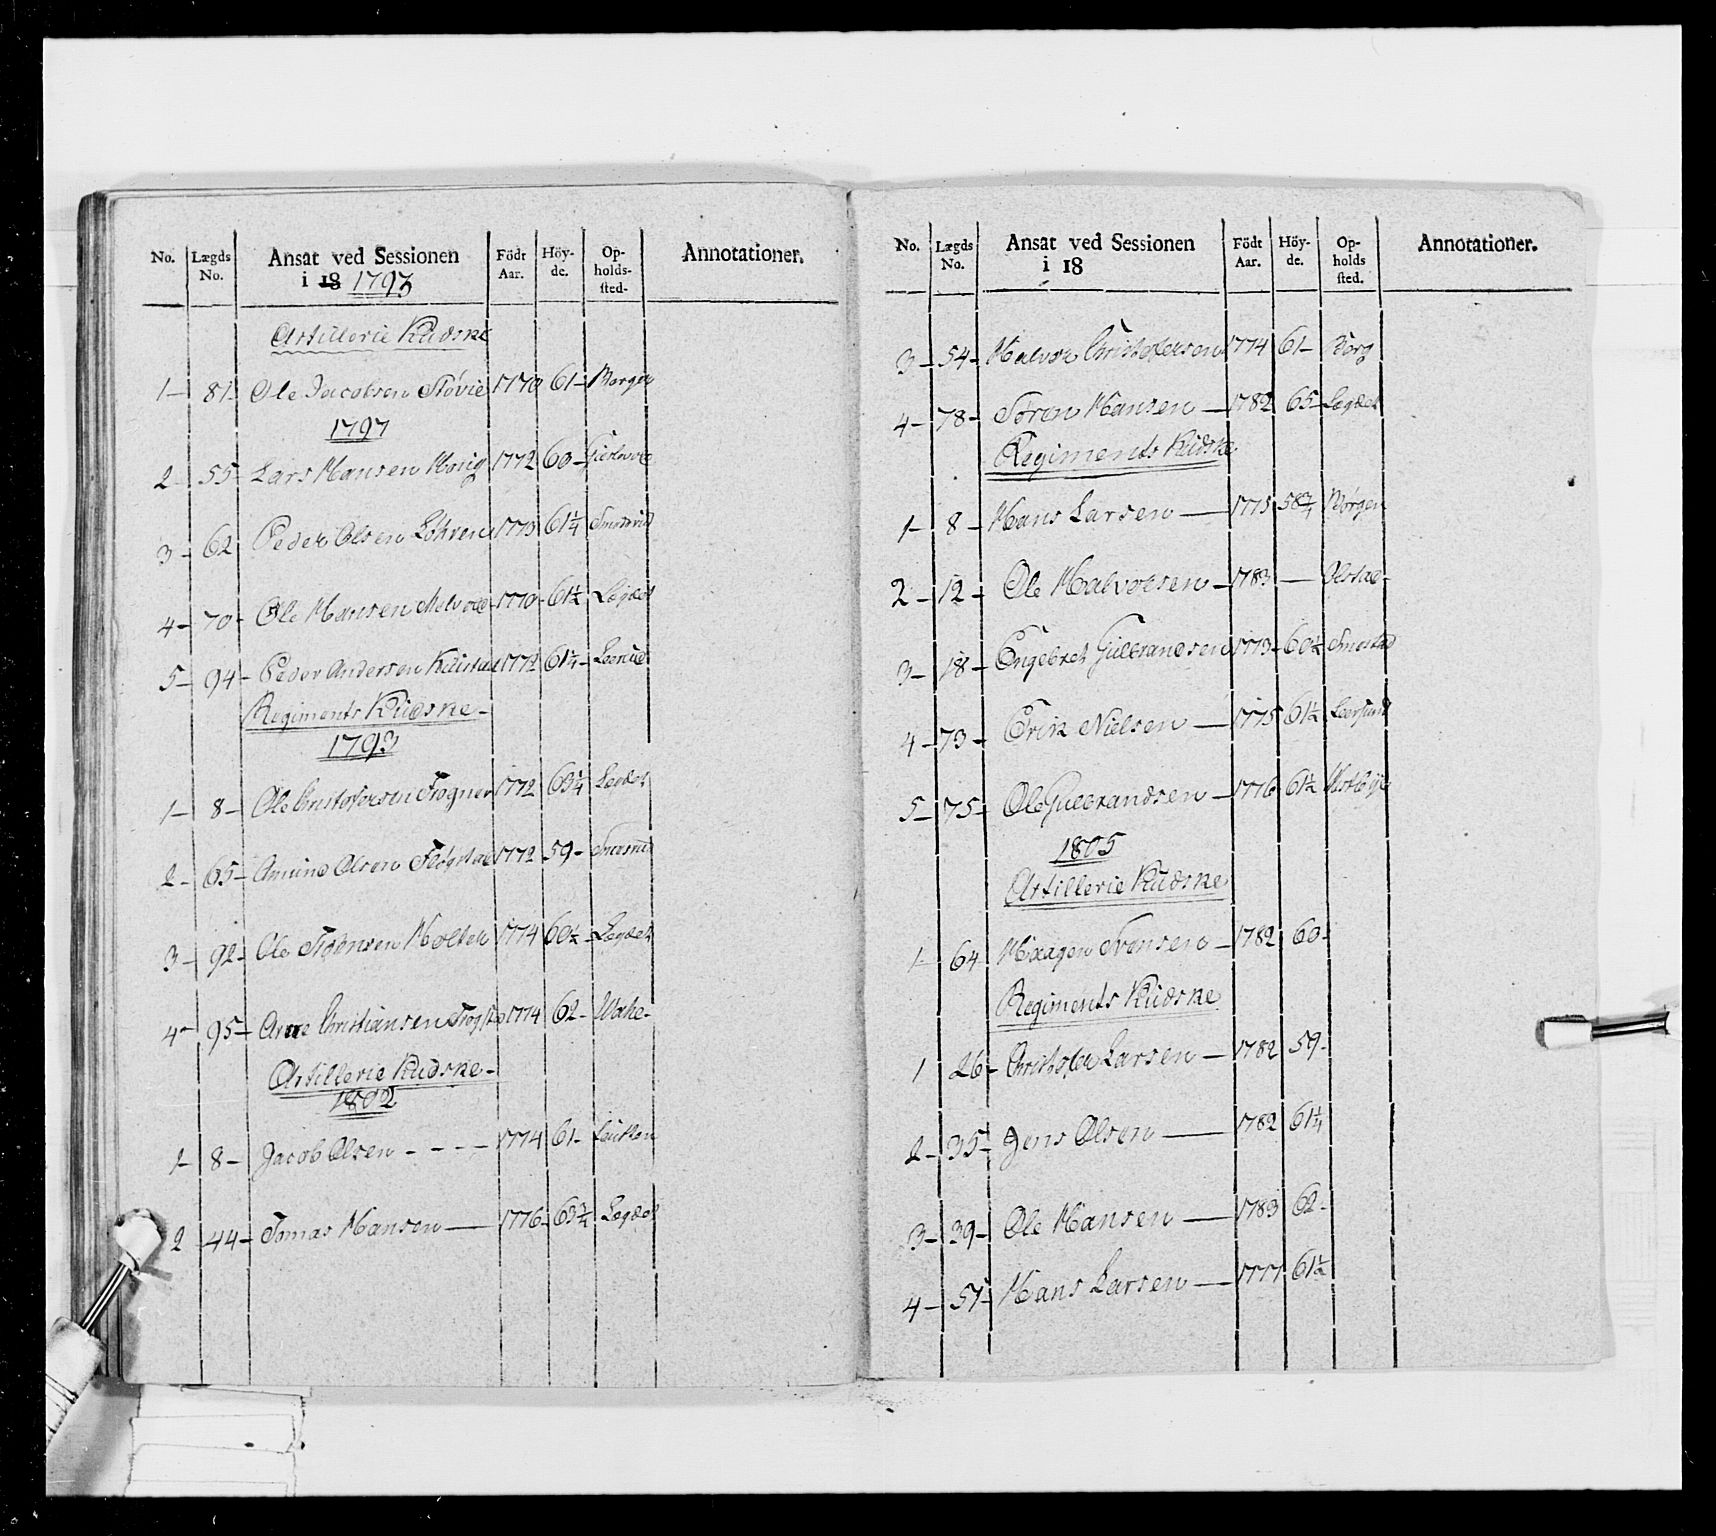 No. Lægds No. Ansat ved Sessionen i 18 1793 Födt Aar. Höyde. Opholdssted. Annotationer.
Artillerie Kudske
1 81 Ole Jacobsen Støvie 1770 61
1797
2 55 Lars Hansen 1772 60
3 62 Peder Olsen 1773 61 1/4
4 70 Ole Hansen 1770 61 1/2 Lægdet
5 94 Peder Andersen 1772 61 1/4
Regiments Kudske
1793
1 8 Ole Christofersen Frogner 1772 63 1/4 Legdet
2 65 Amund Olsen 1772 59
3 92 Ole Holter 1774 60 1/2 Lægdet
4 95 Arne Christiansen 1774 62
Artillerie Kudske
1802
1 8 Jacob Olsen 1774 61
2 44 Tomas Hansen 1776 63 3/4 Legdet
No. Lægds No. Ansat ved Sessionen i 18 Födt Aar. Höyde. Opholds sted. Annotationer.
3 54 Halvor Christofersen 1774 61 Berg
4 78 Søren Hansen 1782 65 Lægdet
Regiments Kudske
1 8 Hans Larsen 1775 58 3/4
2 12 Ole Halvorsen 1783
3 18 Engebret Gulbrandsen 1773 60 1/2 Smestad
4 73 Erik Nielsen 1775 61 1/2
5 75 Ole Gulbrandsen 1776 61 1/2
1805
Artillerie Kudske
1 64 1782 60
Regiments Kudske
1 26 Christofer Larsen 1782 59
2 35 Jens Olsen 1782 61 1/4
3 39 Ole Hansen 1783 62
4 57 Hans Larsen 1777 61 1/2